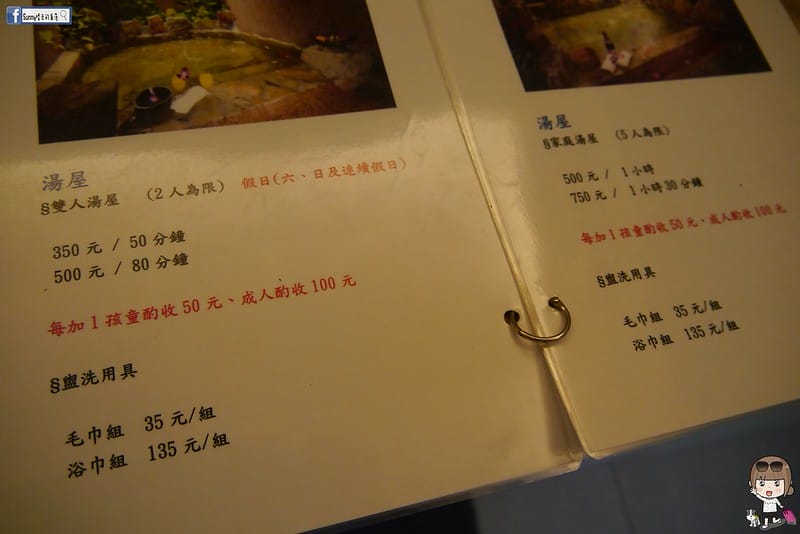 湯屋
§雙人湯屋 (2人為限) 假日(六、日及連續假日)
350 元 / 50 分鐘
500 元 / 80 分鐘
每加1孩童酌收50元、成人酌收100元
§盥洗用具
毛巾組 35元/組
浴巾組 135元/組
湯屋
§家庭湯屋 (5人為限)
500元 / 1小時
750元 / 1小時30分鐘
每加1孩童酌收50元、成人酌收100元
§盥洗用具
毛巾組 35元/組
浴巾組 135元/組